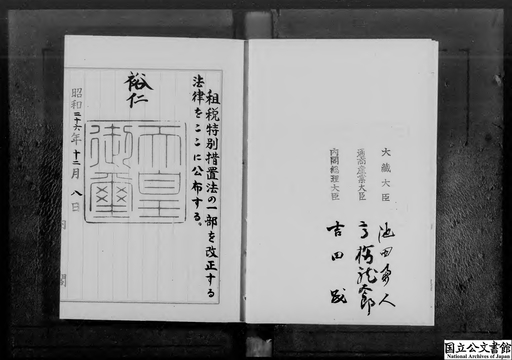 大蔵大臣 池田勇人
通商産業大臣 高橋龍太郎
内閣総理大臣 吉田茂
租税特別措置法の一部を改正する
法律をここに公布する。
裕仁
天皇
御璽
昭和二十六年十二月八日
内閣
国立公文書館
National Archives of Japan